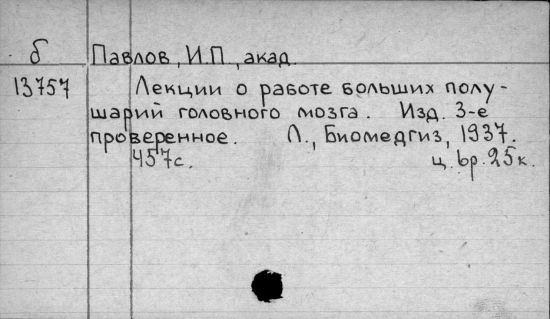 б Павлов, И.П., акад.
13757 Лекции о работе больших полу-
шарий головного мозга. Изд. 3-е
проверенное. Л., Биомедгиз, 1937.
457с. ц. 6р. 25к.